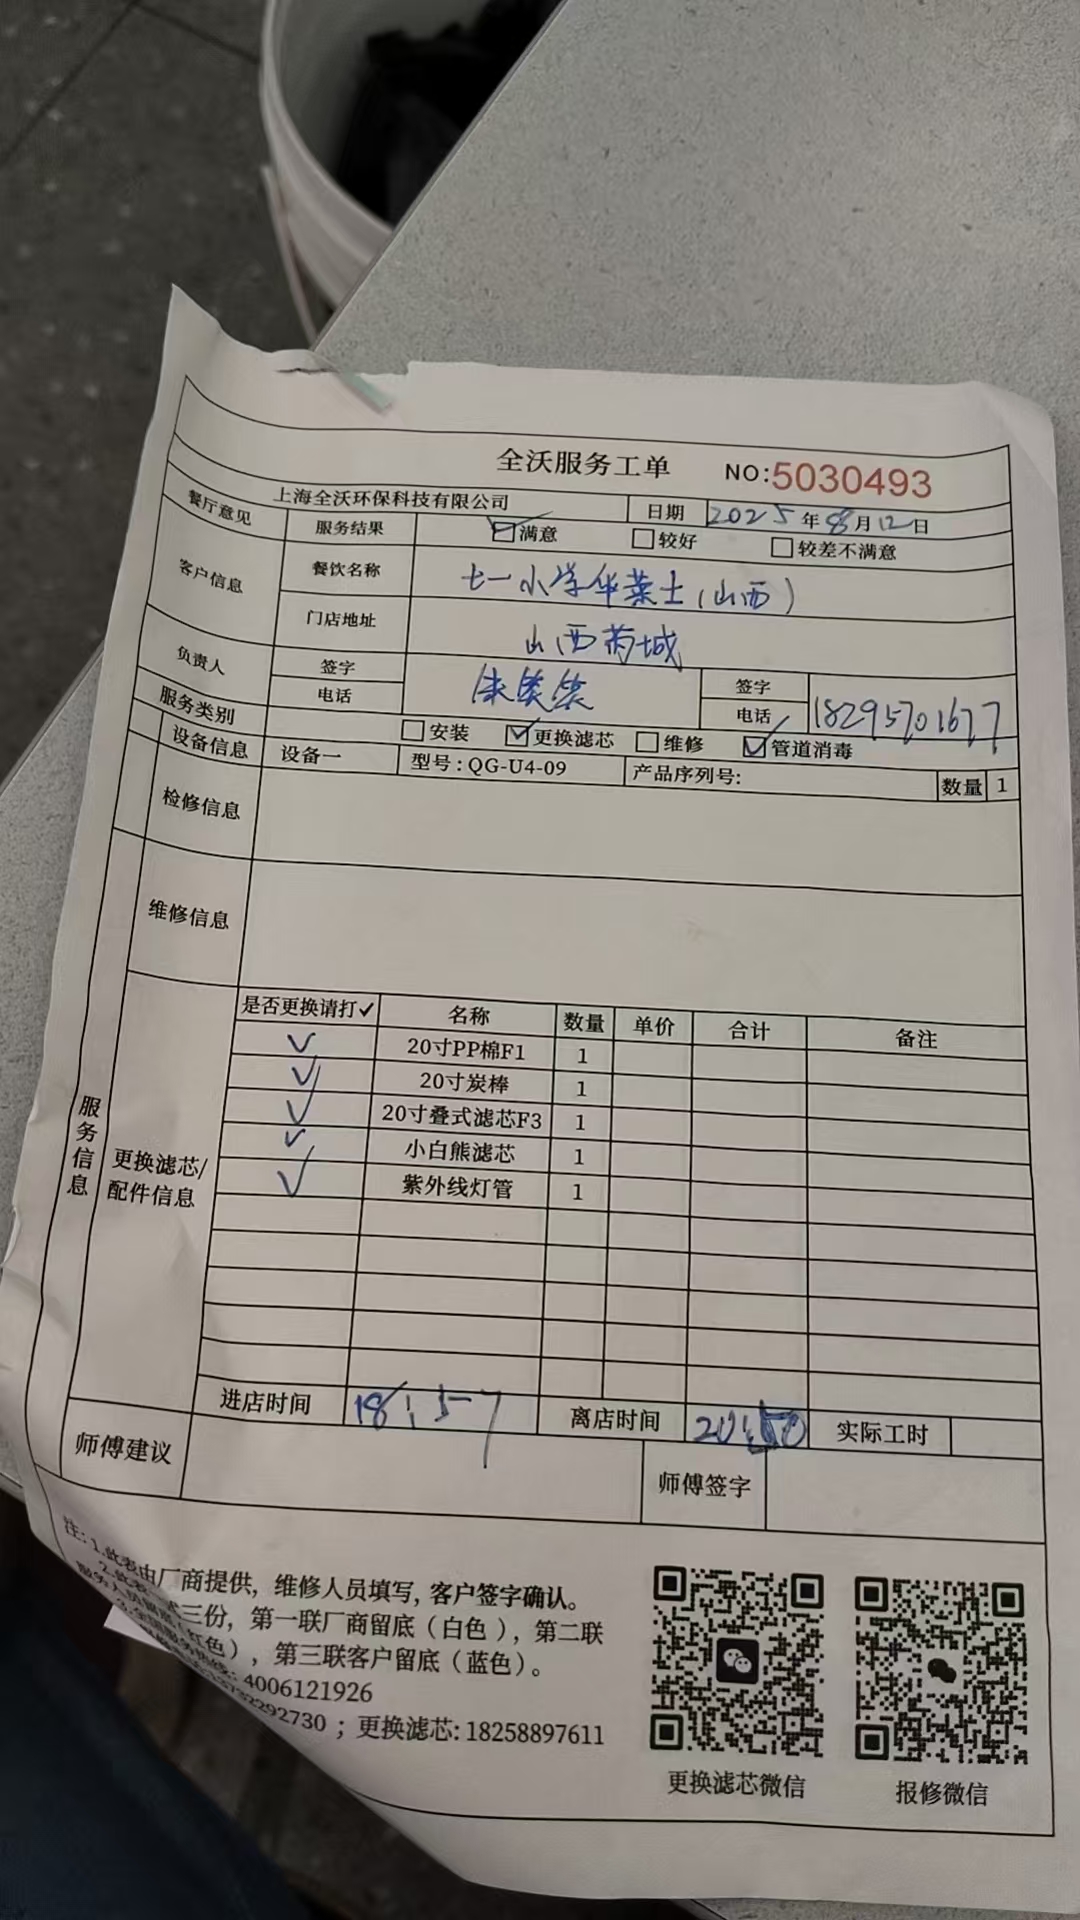 全沃服务工单 NO:5030493
上海全沃环保科技有限公司 日期 2025年8月12日
餐厅意见 服务结果 满意 较好 较差不满意
客户信息 餐饮名称 七一小学华莱士(山西)
门店地址 山西芮城
负责人 签字 签字
电话 电话 18295701677
服务类别 安装 更换滤芯 维修 管道消毒
设备信息 设备一 型号:QG-U4-09 产品序列号: 数量 1
检修信息
维修信息
服务信息
更换滤芯/配件信息
是否更换请打✓ 名称 数量 单价 合计 备注
✓ 20寸PP棉F1 1
✓ 20寸炭棒 1
✓ 20寸叠式滤芯F3 1
✓ 小白熊滤芯 1
✓ 紫外线灯管 1
进店时间 18:57 离店时间 20:50 实际工时
师傅建议 师傅签字
注:1.此表由厂商提供,维修人员填写,客户签字确认。
2.此表 式三份,第一联厂商留底(白色),第二联
服务人员留底(红色),第三联客户留底(蓝色)。
3.全国服务热线:4006121926
13732292730;更换滤芯:18258897611
更换滤芯微信 报修微信